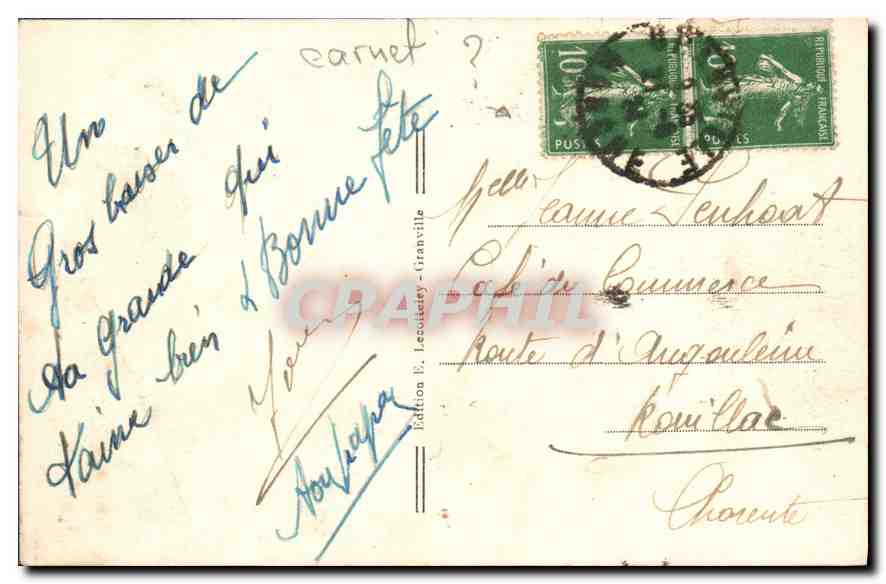 carnet ?
Un
Gros baiser de
Sa grande qui
t'aime bien & Bonne fête
Son papa
Edition E. Lecotteley - Granville
RÉPUBLIQUE FRANÇAISE
10c
POSTES
RÉPUBLIQUE FRANÇAISE
10c
POSTES
Melle Jeanne Penhoat
Café du Commerce
Route d'Angoulême
Rouillac
Charente
CPAPHIL